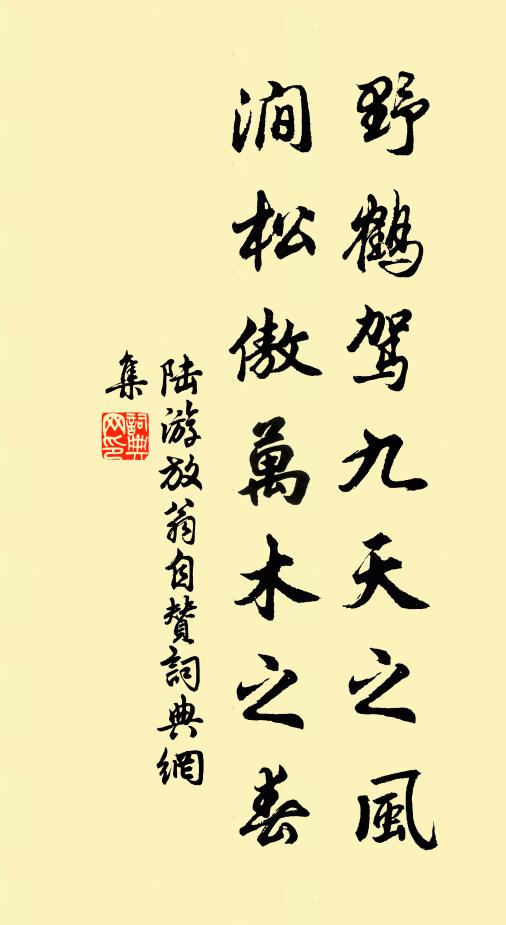 野鶴駕九天之風
澗松傲萬木之春
陆游放翁自赞詞典網
集
詞典
网印